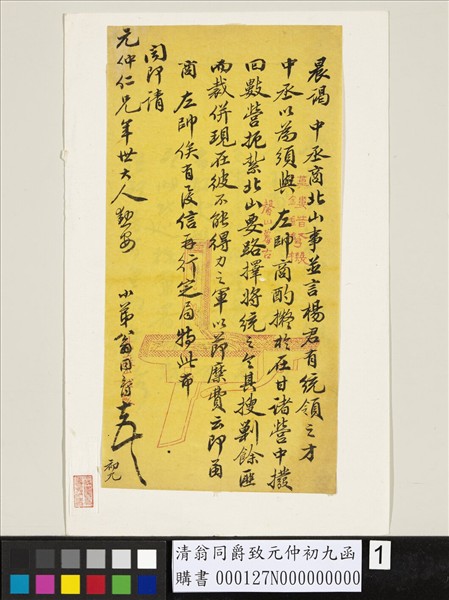 晨謁　中丞商北山事並言楊君有統領之才
中丞以為須與　左帥商酌擬於在甘諸營中撥
回數營扼紮北山要路擇將統之令其搜剿餘匪
而裁併現在彼不能得力之軍以節糜費云即函
商　左帥俟有復信再行定局特此布
聞即請
元仲仁兄年世大人勛安
小弟翁同爵頓首
初九
清翁同爵致元仲初九函
購書 000127N000000000
1